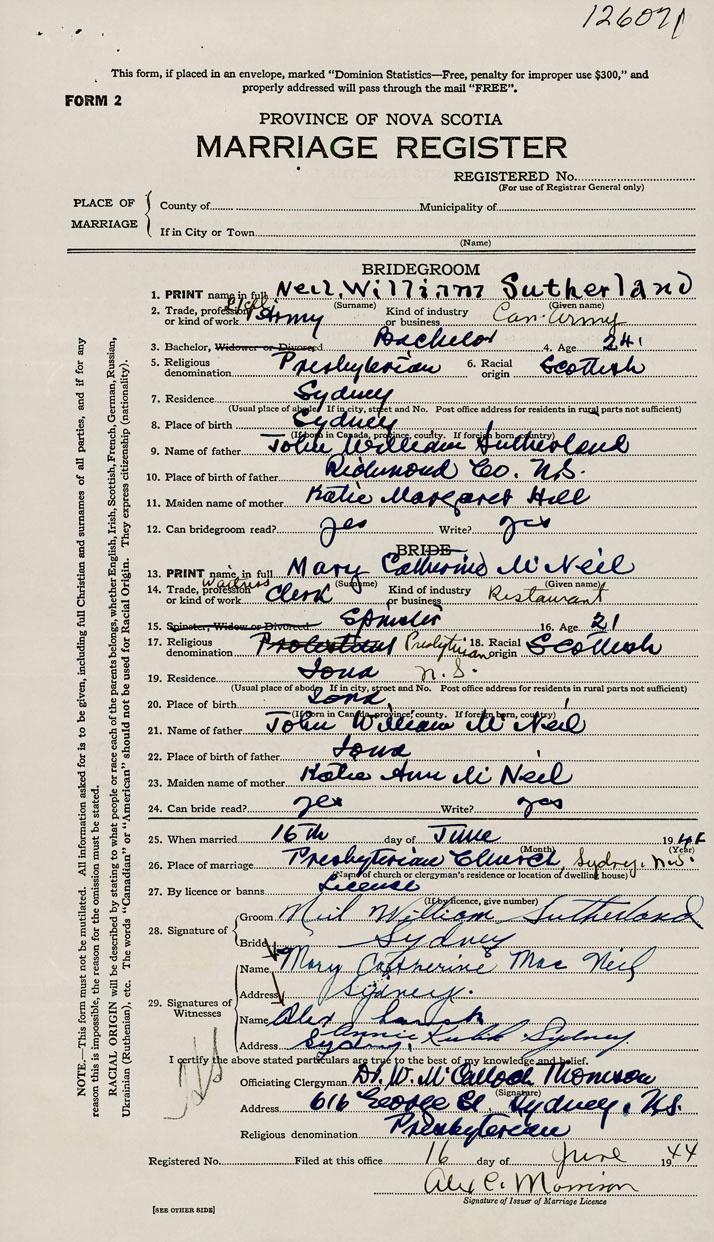 126071
This form, if placed in an envelope, marked "Dominion Statistics—Free, penalty for improper use $300," and
properly addressed will pass through the mail "FREE".
FORM 2
PROVINCE OF NOVA SCOTIA
MARRIAGE REGISTER
REGISTERED No.
(For use of Registrar General only)
PLACE OF MARRIAGE
County of Municipality of
If in City or Town
(Name)
BRIDEGROOM
1. PRINT name in full Neil William Sutherland
(Surname) (Given name)
2. Trade, profession or kind of work Army Kind of industry or business Can. Army
3. Bachelor, Widower or Divorced Bachelor 4. Age 24
5. Religious denomination Presbyterian 6. Racial origin Scottish
7. Residence Sydney
(Usual place of abode. If in city, street and No. Post office address for residents in rural parts not sufficient)
8. Place of birth Sydney
(If born in Canada, province, county. If foreign born, country)
9. Name of father John William Sutherland
10. Place of birth of father Richmond Co. N.S.
11. Maiden name of mother Katie Margaret Hill
12. Can bridegroom read? yes Write? yes
BRIDE
13. PRINT name in full Mary Catherine McNeil
(Surname) (Given name)
14. Trade, profession or kind of work waitress Clerk Kind of industry or business Restaurant
15. Spinster, Widow or Divorced Spinster 16. Age 21
17. Religious denomination Protestant Presbyterian 18. Racial origin Scottish
19. Residence Iona N.S.
(Usual place of abode. If in city, street and No. Post office address for residents in rural parts not sufficient)
20. Place of birth Iona
(If born in Canada, province, county. If foreign born, country)
21. Name of father John William McNeil
22. Place of birth of father Iona
23. Maiden name of mother Katie Ann McNeil
24. Can bride read? yes Write? yes
25. When married 16th day of June 1944
(Month) (Year)
26. Place of marriage Presbyterian Church, Sydney, N.S.
(Name of church or clergyman's residence or location of dwelling house)
27. By licence or banns License
(If by licence, give number)
28. Signature of
Groom Neil William Sutherland
Bride Sydney
29. Signatures of Witnesses
Name Mary Catherine Mac Neil
Address Sydney.
Name Alex
Address Sydney, Sydney
I certify the above stated particulars are true to the best of my knowledge and belief.
Officiating Clergyman Dr. W. McCulloch Thomson
(Signature)
Address 616 George St Sydney, N.S.
Religious denomination Presbyterian
Registered No. Filed at this office 16 day of June 1944
Alex C. Morrison
Signature of Issuer of Marriage Licence
[SEE OTHER SIDE]
NOTE.—This form must not be mutilated. All information asked for is to be given, including full Christian and surnames of all parties, and if for any
reason this is impossible, the reason for the omission must be stated.
RACIAL ORIGIN will be described by stating to what people or race each of the parents belongs, whether English, Irish, Scottish, French, German, Russian,
Ukrainian (Ruthenian), etc. The words "Canadian" or "American" should not be used for Racial Origin. They express citizenship (nationality).